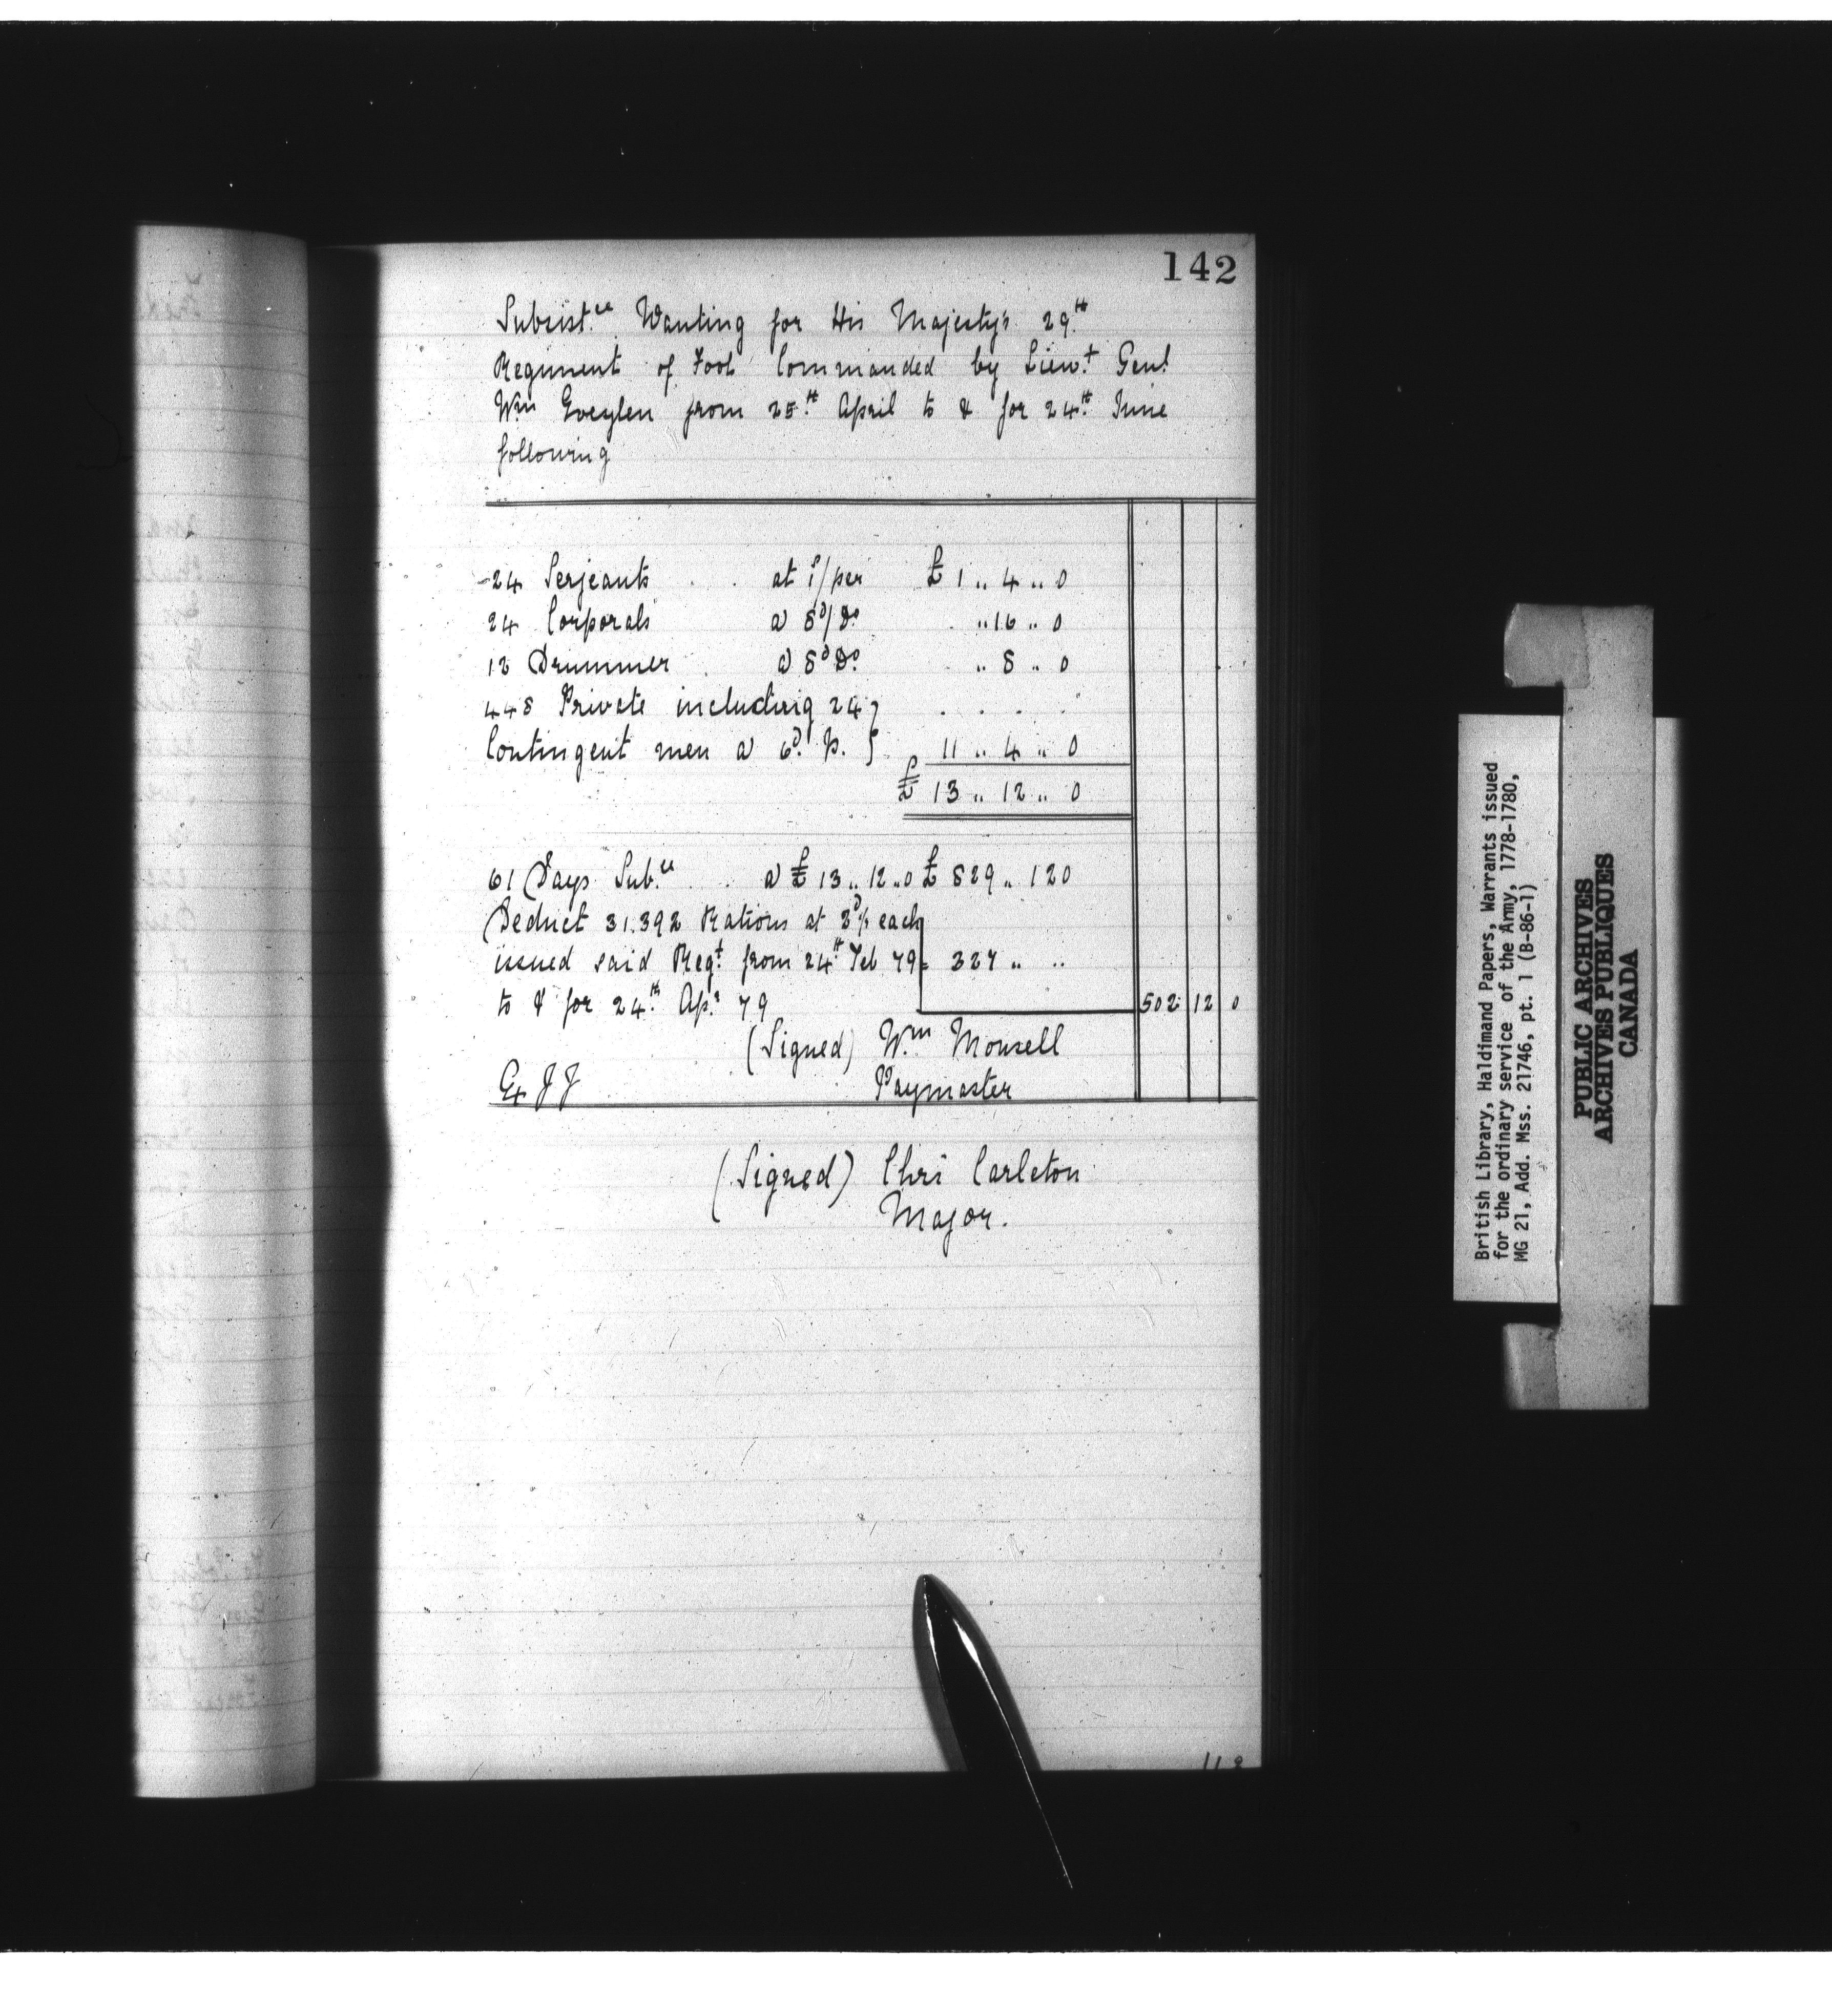 142
Subsist.ce Wanting for His Majesty's 29.th
Regiment of Foot Commanded by Lieu.t Gen.l
Wm Eveylen from 25.th April to & for 24.th June
following
24 Serjeants . . at 1s/per £ 1 " 4 " 0
24 Corporals a 8d/Do . " 16 " 0
12 Drummer . a 8d Do " 8 " 0
448 Private including 24 } . . . .
Contingent men a 6d. p. } 11 " 4 " 0
£ 13 " 12 " 0
61 Days Sub.ce . . a £ 13 " 12 " 0 £ 829 " 12 0
Deduct 31.392 Rations at each
issued said Reg.t from 24th Feb 79 327 " "
to & for 24.th Ap.r 79 502 12 0
(Signed) W.m Monsell
Ex J J Paymaster
(Signed) Chri Carleton
Major.
British Library, Haldimand Papers, Warrants issued
for the ordinary service of the Army, 1778-1780,
MG 21, Add. Mss. 21746, pt. 1 (B-86-1)
PUBLIC ARCHIVES
ARCHIVES PUBLIQUES
CANADA